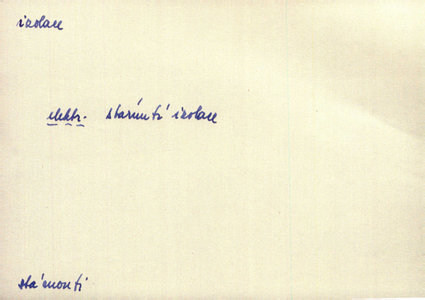 izolace
elektr. stárnutí izolace
stárnutí